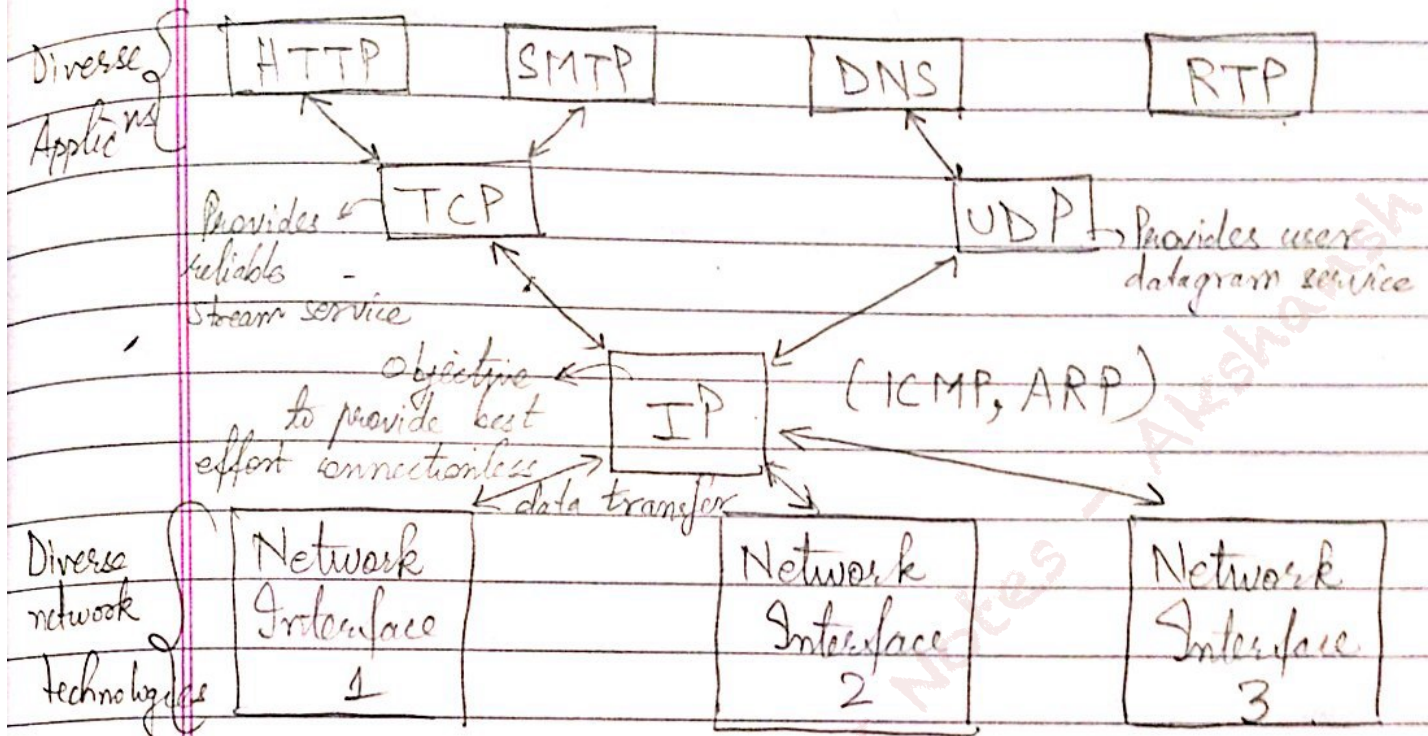 HTTP SMTP DNS RTP
Diverse
Applicns
TCP UDP
Provides
reliable
stream service
Provides user
datagram service
Objective
to provide best
effort connectionless
data transfer
IP (ICMP, ARP)
Diverse
network
technologies
Network
Interface
1
Network
Interface
2
Network
Interface
3
Notes - Akshansh